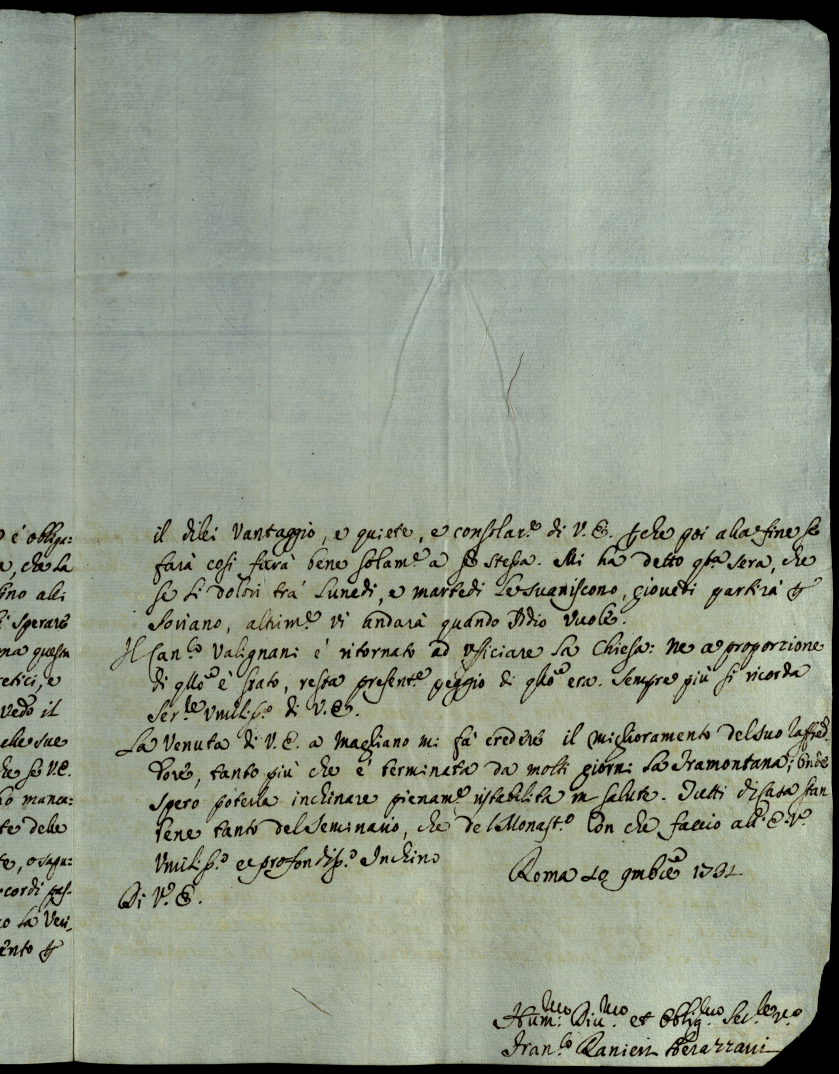 o è obliga:
a, che la
ino ali
i sperare
ma questa
retici, e
vedo il
elle sue
che se V.E.
ho manca:
te delle
te, o segu:
cordi pas-
co la Veri
ento
il dilei Vantaggio, e quiete, e consolar.e di V.E. che poi alla fine se
farà così farà bene solam.e a se stessa. Mi ha detto q.ta sera, che
se li dolori trà Lunedì, e martedì le suaniscono, giovedì partirà
Soriano, altrim.e vi andarà quando Iddio Vuole.
Il Can.co Valignani è ritornato ad officiare la Chiesa: Ne a proporzione
di q.llo è stato, resta present.e peggio di q.llo era. Sempre più si ricorda
Ser.le Umilis.o di V.E.
La Venuta di V.E. a Magliano mi fà credere il miglioramento del suo Raffred
dore, tanto più che è terminata da molti giorni la Tramontana; onde
spero poterla inchinare pienam.e ristabilita in salute. Tutti di Casa stan
bene tanto del Seminario, che del Monast.o Con che faccio all' E.V.
Umilis.o e profondis.o Inchino
Roma 10 9mbre 1734
Di V. E.
Hum.mo Div.mo et Obblig.mo Ser.le v.o
Fran.co Ranieri